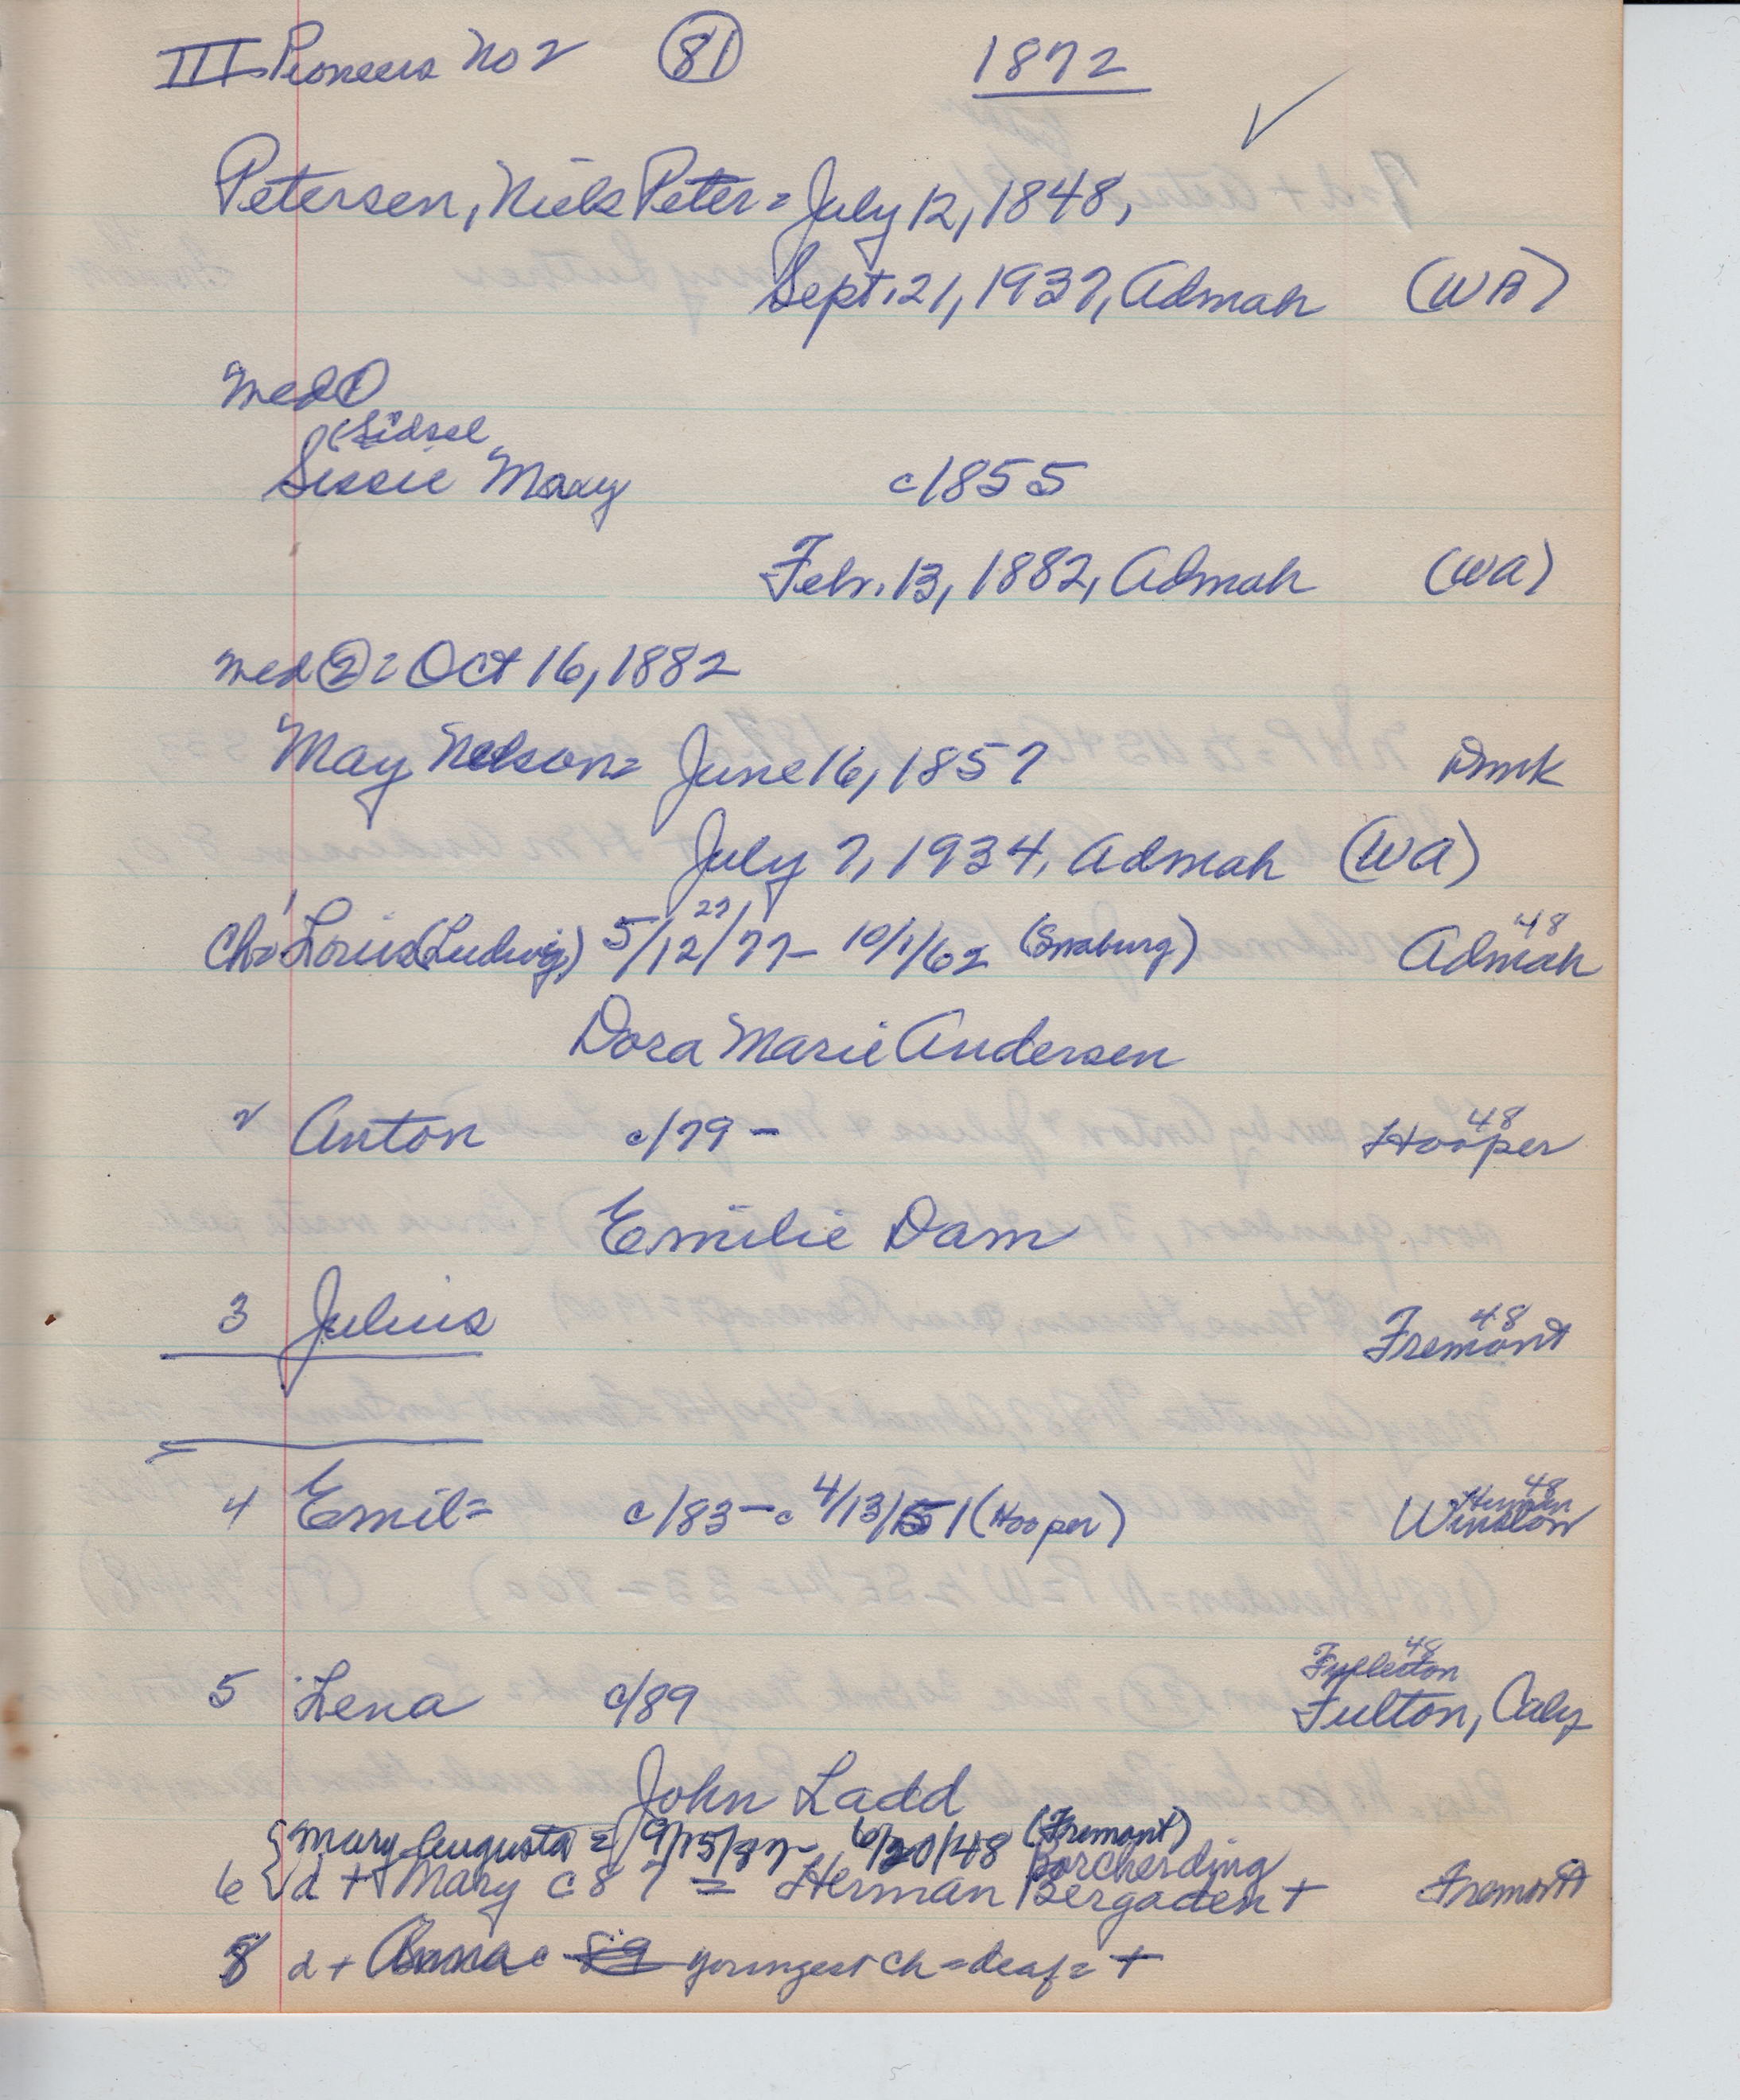 III Pioneers No 2 (81) 1872 ✓
Petersen, Niels Peter = July 12, 1848,
Sept. 21, 1937, Admah (WA)
Med ①
(Sidsel
Sissie Mary c1855
Febr. 13, 1882, Admah (WA)
Med ② = Oct 16, 1882
May Nelson = June 16, 1857 Dmk
July 7, 1934, Admah (WA)
Ch = 1 Louis (Ludwig) 5/12/77 - 10/1/62 (Snaburg) 48 Admah
27
Dora Marie Andersen
2 Anton c/79 - 48 Hooper
Emilie Dam
3 Julius 48 Fremont
4 Emil = c/83 - c 4/13/51 (Hooper) 48 Winslow
5 Lena c/89 48 Fulton, Calif
John Ladd
{ Mary Augusta = 9/15/87 - 6/20/48 (Fremont)
Borcherding
6 { d + Mary c 87 = Herman Bergaden + Fremont
8 d + Anna c 89 youngest ch = deaf = +